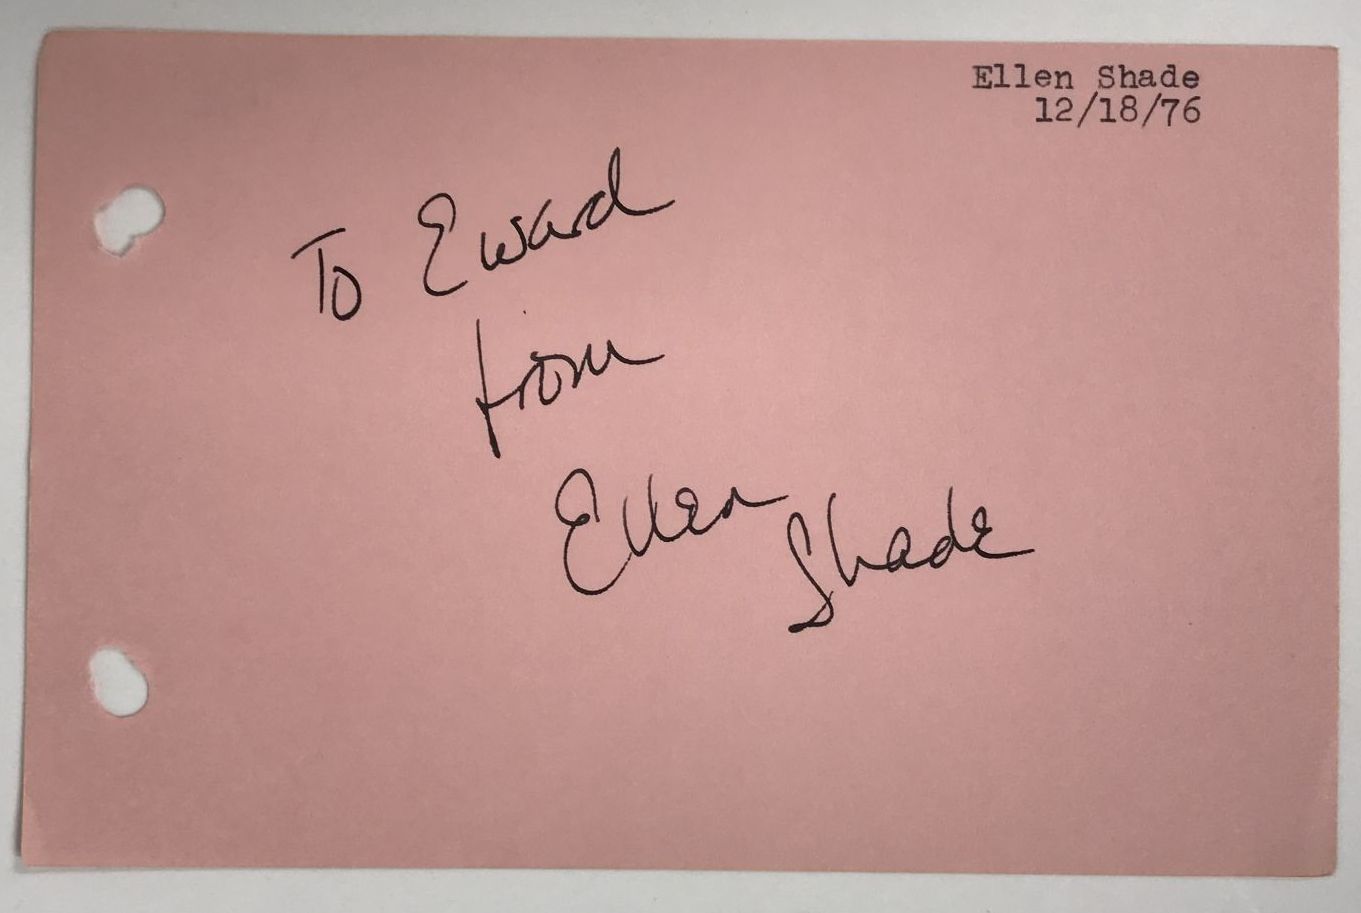 Ellen Shade
12/18/76
To Eward
from
Ellen Shade